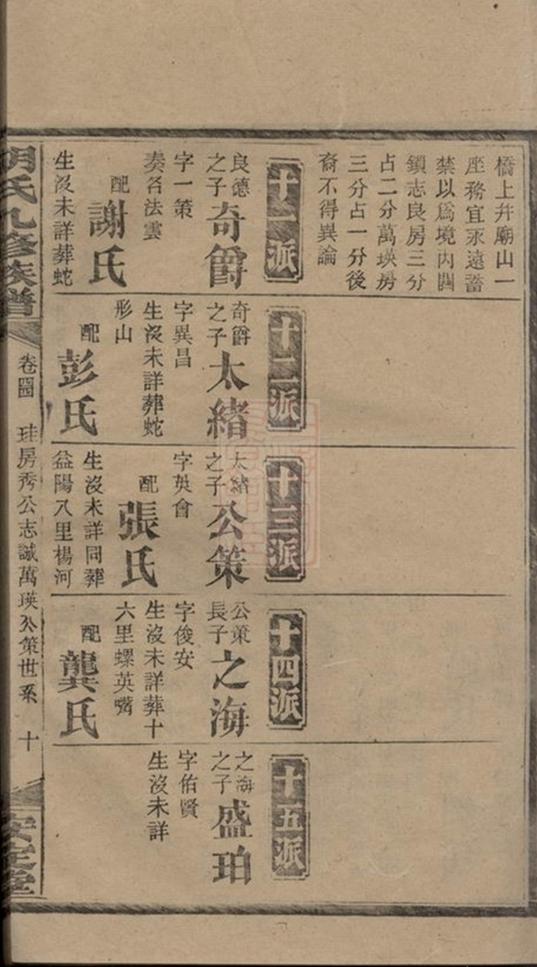 橋上井廟山一
座務宜永遠蓄
禁以爲境內關
鎖志良房三分
占二分萬瑛房
三分占一分後
裔不得異論
十一派
良德之子
奇爵
字一策
奏名法雲
配
謝氏
生沒未詳葬蛇
十二派
奇爵之子
太緒
字異昌
生沒未詳葬蛇
形山
配
彭氏
十三派
太緒之子
公策
字英會
配
張氏
生沒未詳同葬
益陽八里楊河
十四派
公策長子
之海
字俊安
生沒未詳葬十
六里螺英嘴
配
龔氏
十五派
之海之子
盛珀
字佑賢
生沒未詳
胡氏九修族譜
卷
珪房秀公志誠萬瑛公策世系
十
安定堂